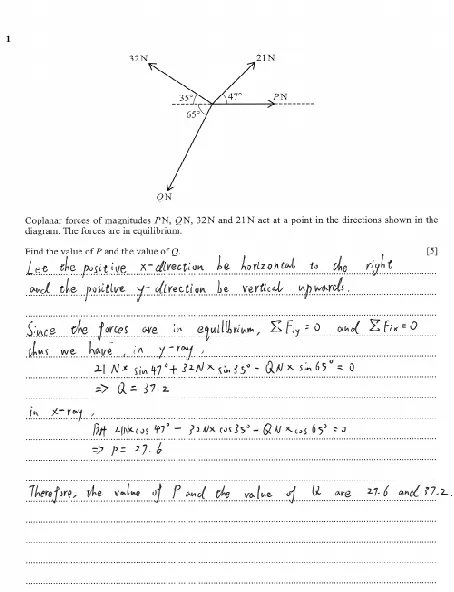 1
32N
21N
35°
47°
PN
65°
QN
Coplanar forces of magnitudes PN, QN, 32N and 21N act at a point in the directions shown in the
diagram. The forces are in equilibrium.
Find the value of P and the value of Q. [5]
Let the positive x-direction be horizontal to the right
and the positive y-direction be vertical upwards.
Since the forces are in equilibrium, ΣFiy = 0 and ΣFix = 0
thus we have, in y-ray,
21N × sin 47° + 32N × sin 35° - QN × sin 65° = 0
=> Q = 37.2
in x-ray,
21N × cos 47° - 32N × cos 35° - QN × cos 65° = 0
=> P = 27.6
Therefore, the value of P and the value of Q are 27.6 and 37.2.